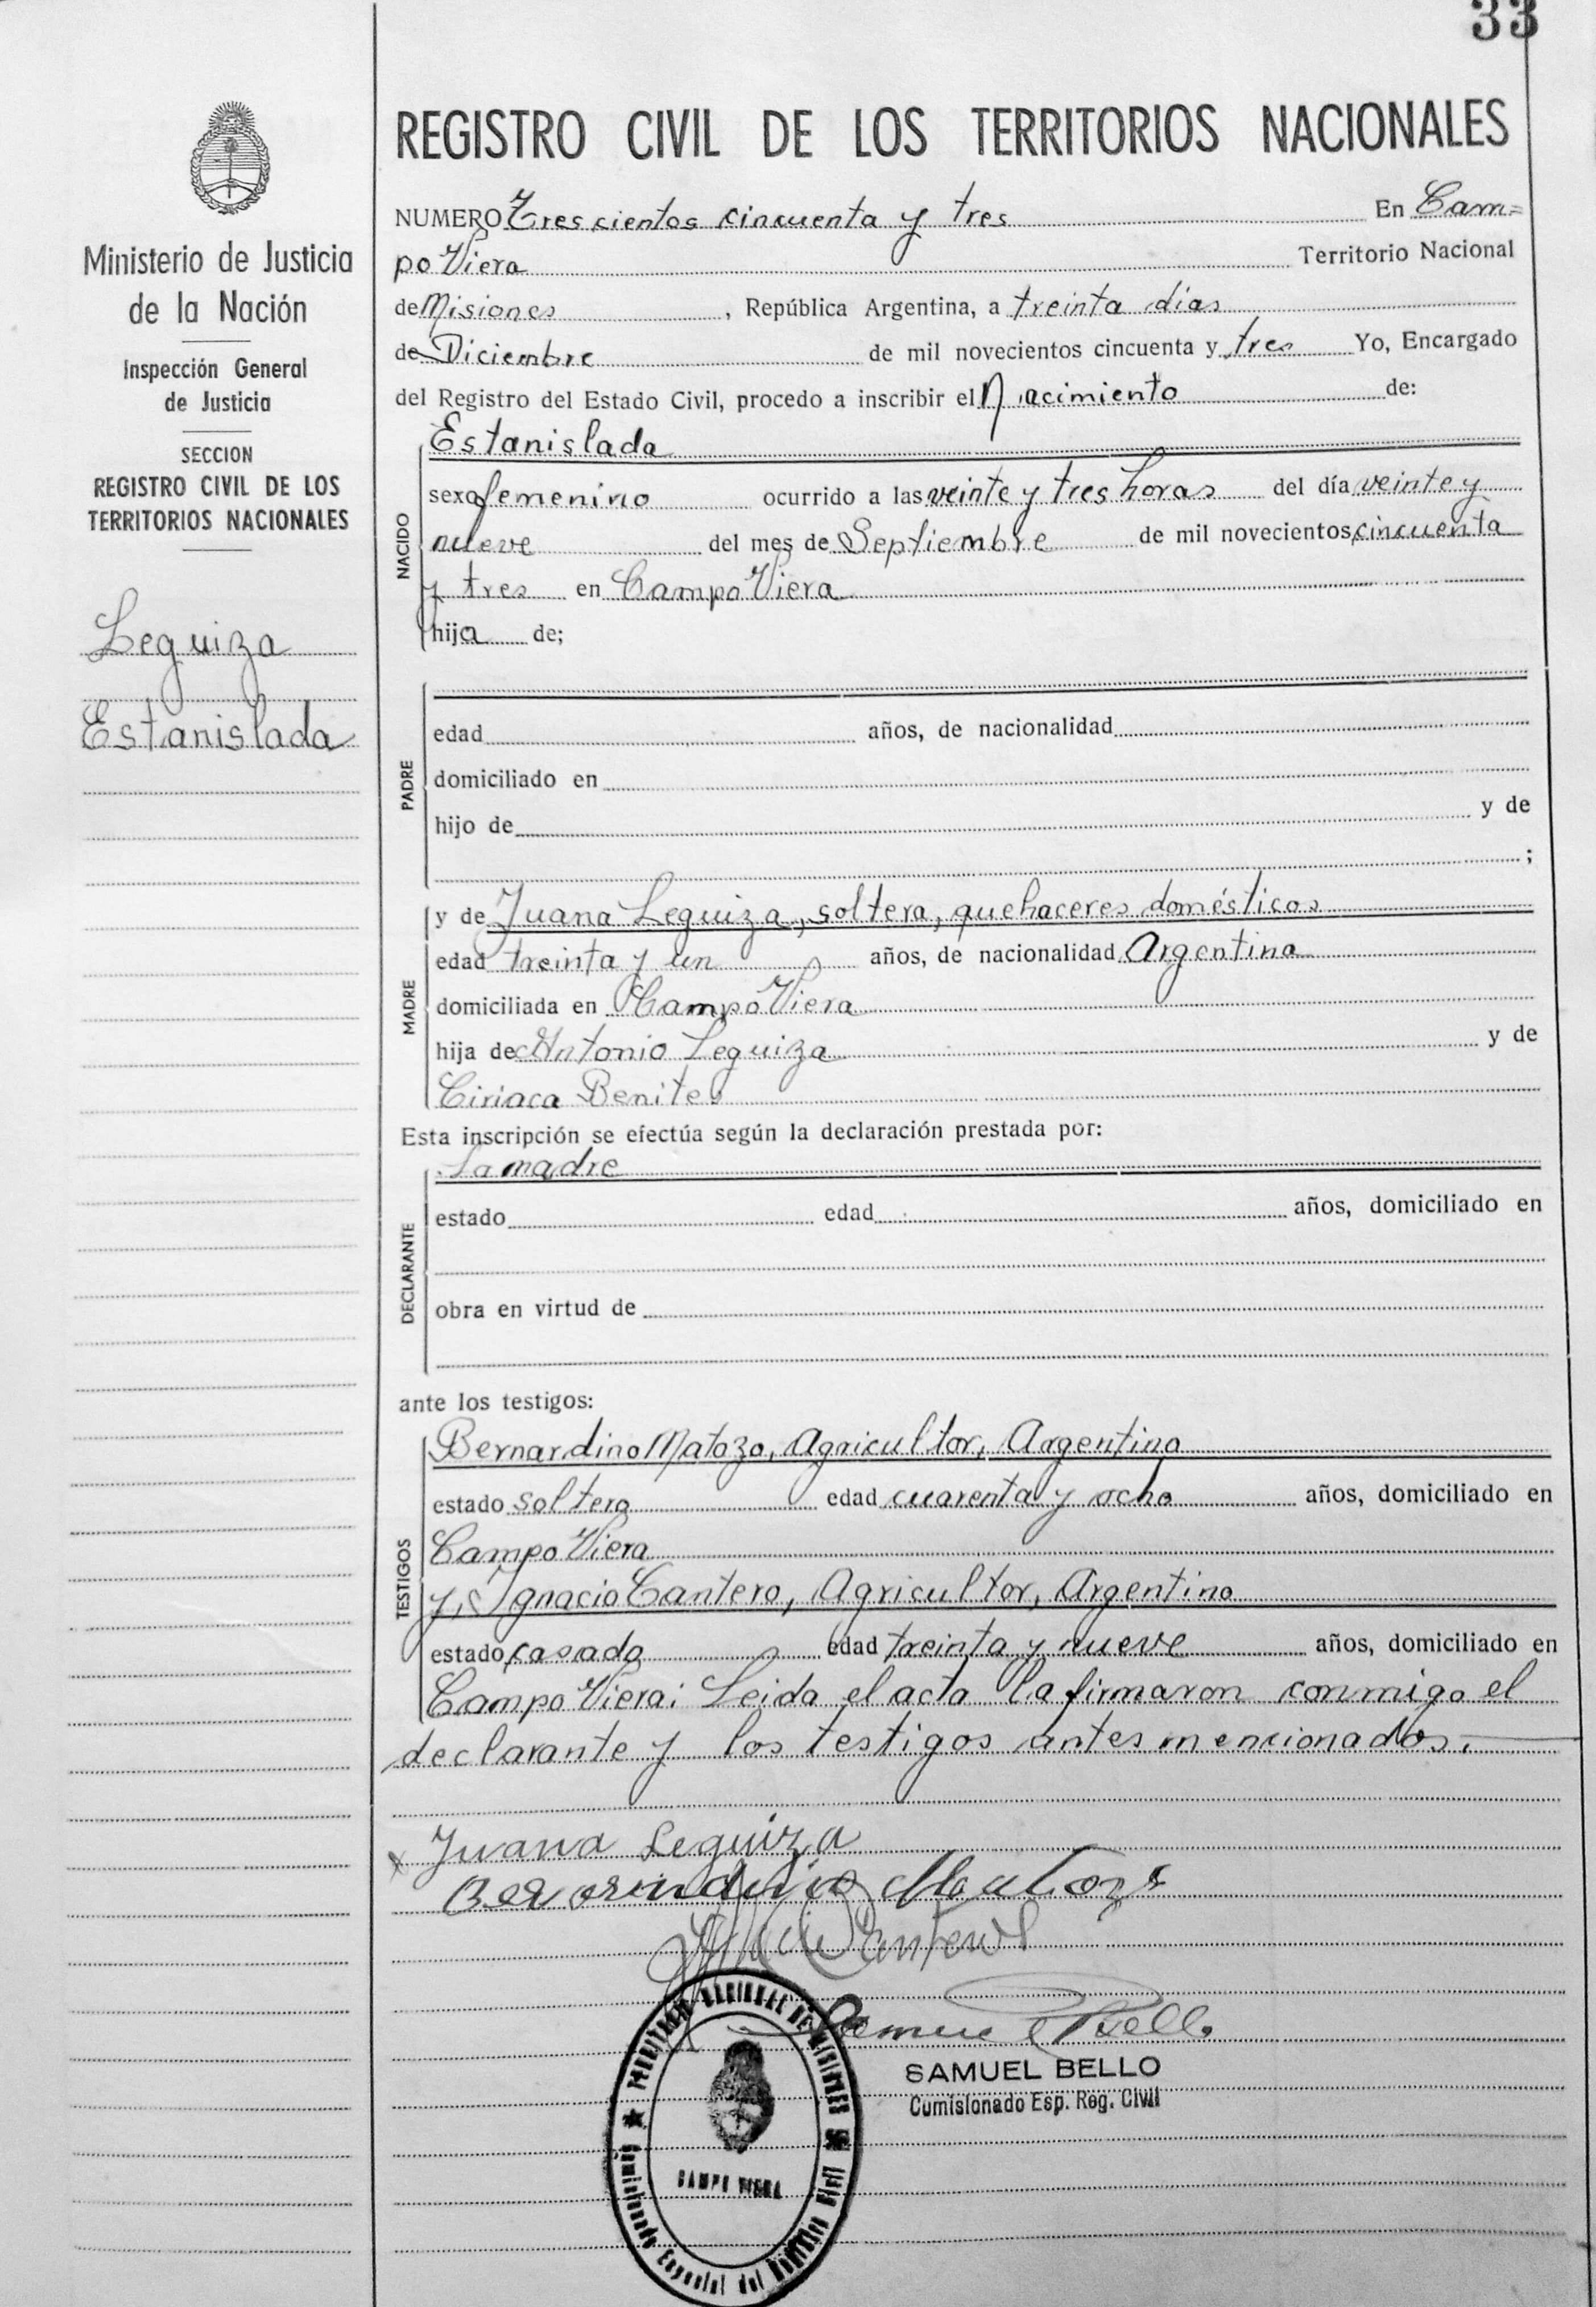 33
REGISTRO CIVIL DE LOS TERRITORIOS NACIONALES
Ministerio de Justicia
de la Nación
Inspección General
de Justicia
SECCION
REGISTRO CIVIL DE LOS
TERRITORIOS NACIONALES
Leguiza
Estanislada
NUMERO Trescientos cincuenta y tres En Cam=
po Viera Territorio Nacional
de Misiones, República Argentina, a treinta días
de Diciembre de mil novecientos cincuenta y tres Yo, Encargado
del Registro del Estado Civil, procedo a inscribir el Nacimiento de:
NACIDO
Estanislada
sexo femenino ocurrido a las veinte y tres horas del día veinte y
nueve del mes de Septiembre de mil novecientos cincuenta
y tres en Campo Viera
hija de;
PADRE
edad años, de nacionalidad
domiciliado en
hijo de y de
;
MADRE
y de Juana Leguiza, soltera, quehaceres domésticos
edad treinta y un años, de nacionalidad Argentina
domiciliada en Campo Viera
hija de Antonio Leguiza y de
Ciriaca Benites
Esta inscripción se efectúa según la declaración prestada por:
DECLARANTE
La madre
estado edad años, domiciliado en
obra en virtud de
ante los testigos:
TESTIGOS
Bernardino Matozo, Agricultor, Argentino
estado soltero edad cuarenta y ocho años, domiciliado en
Campo Viera
y, Ignacio Cantero, Agricultor, Argentino
estado casado edad treinta y nueve años, domiciliado en
Campo Viera: Leida el acta la firmaron conmigo el
declarante y los testigos antes mencionados.
x Juana Leguiza
Cantero
SAMUEL BELLO
Comisionado Esp. Reg. Civil
TERRITORIO NACIONAL DE MISIONES
CAMPO VIERA
Comisionado Especial del Registro Civil